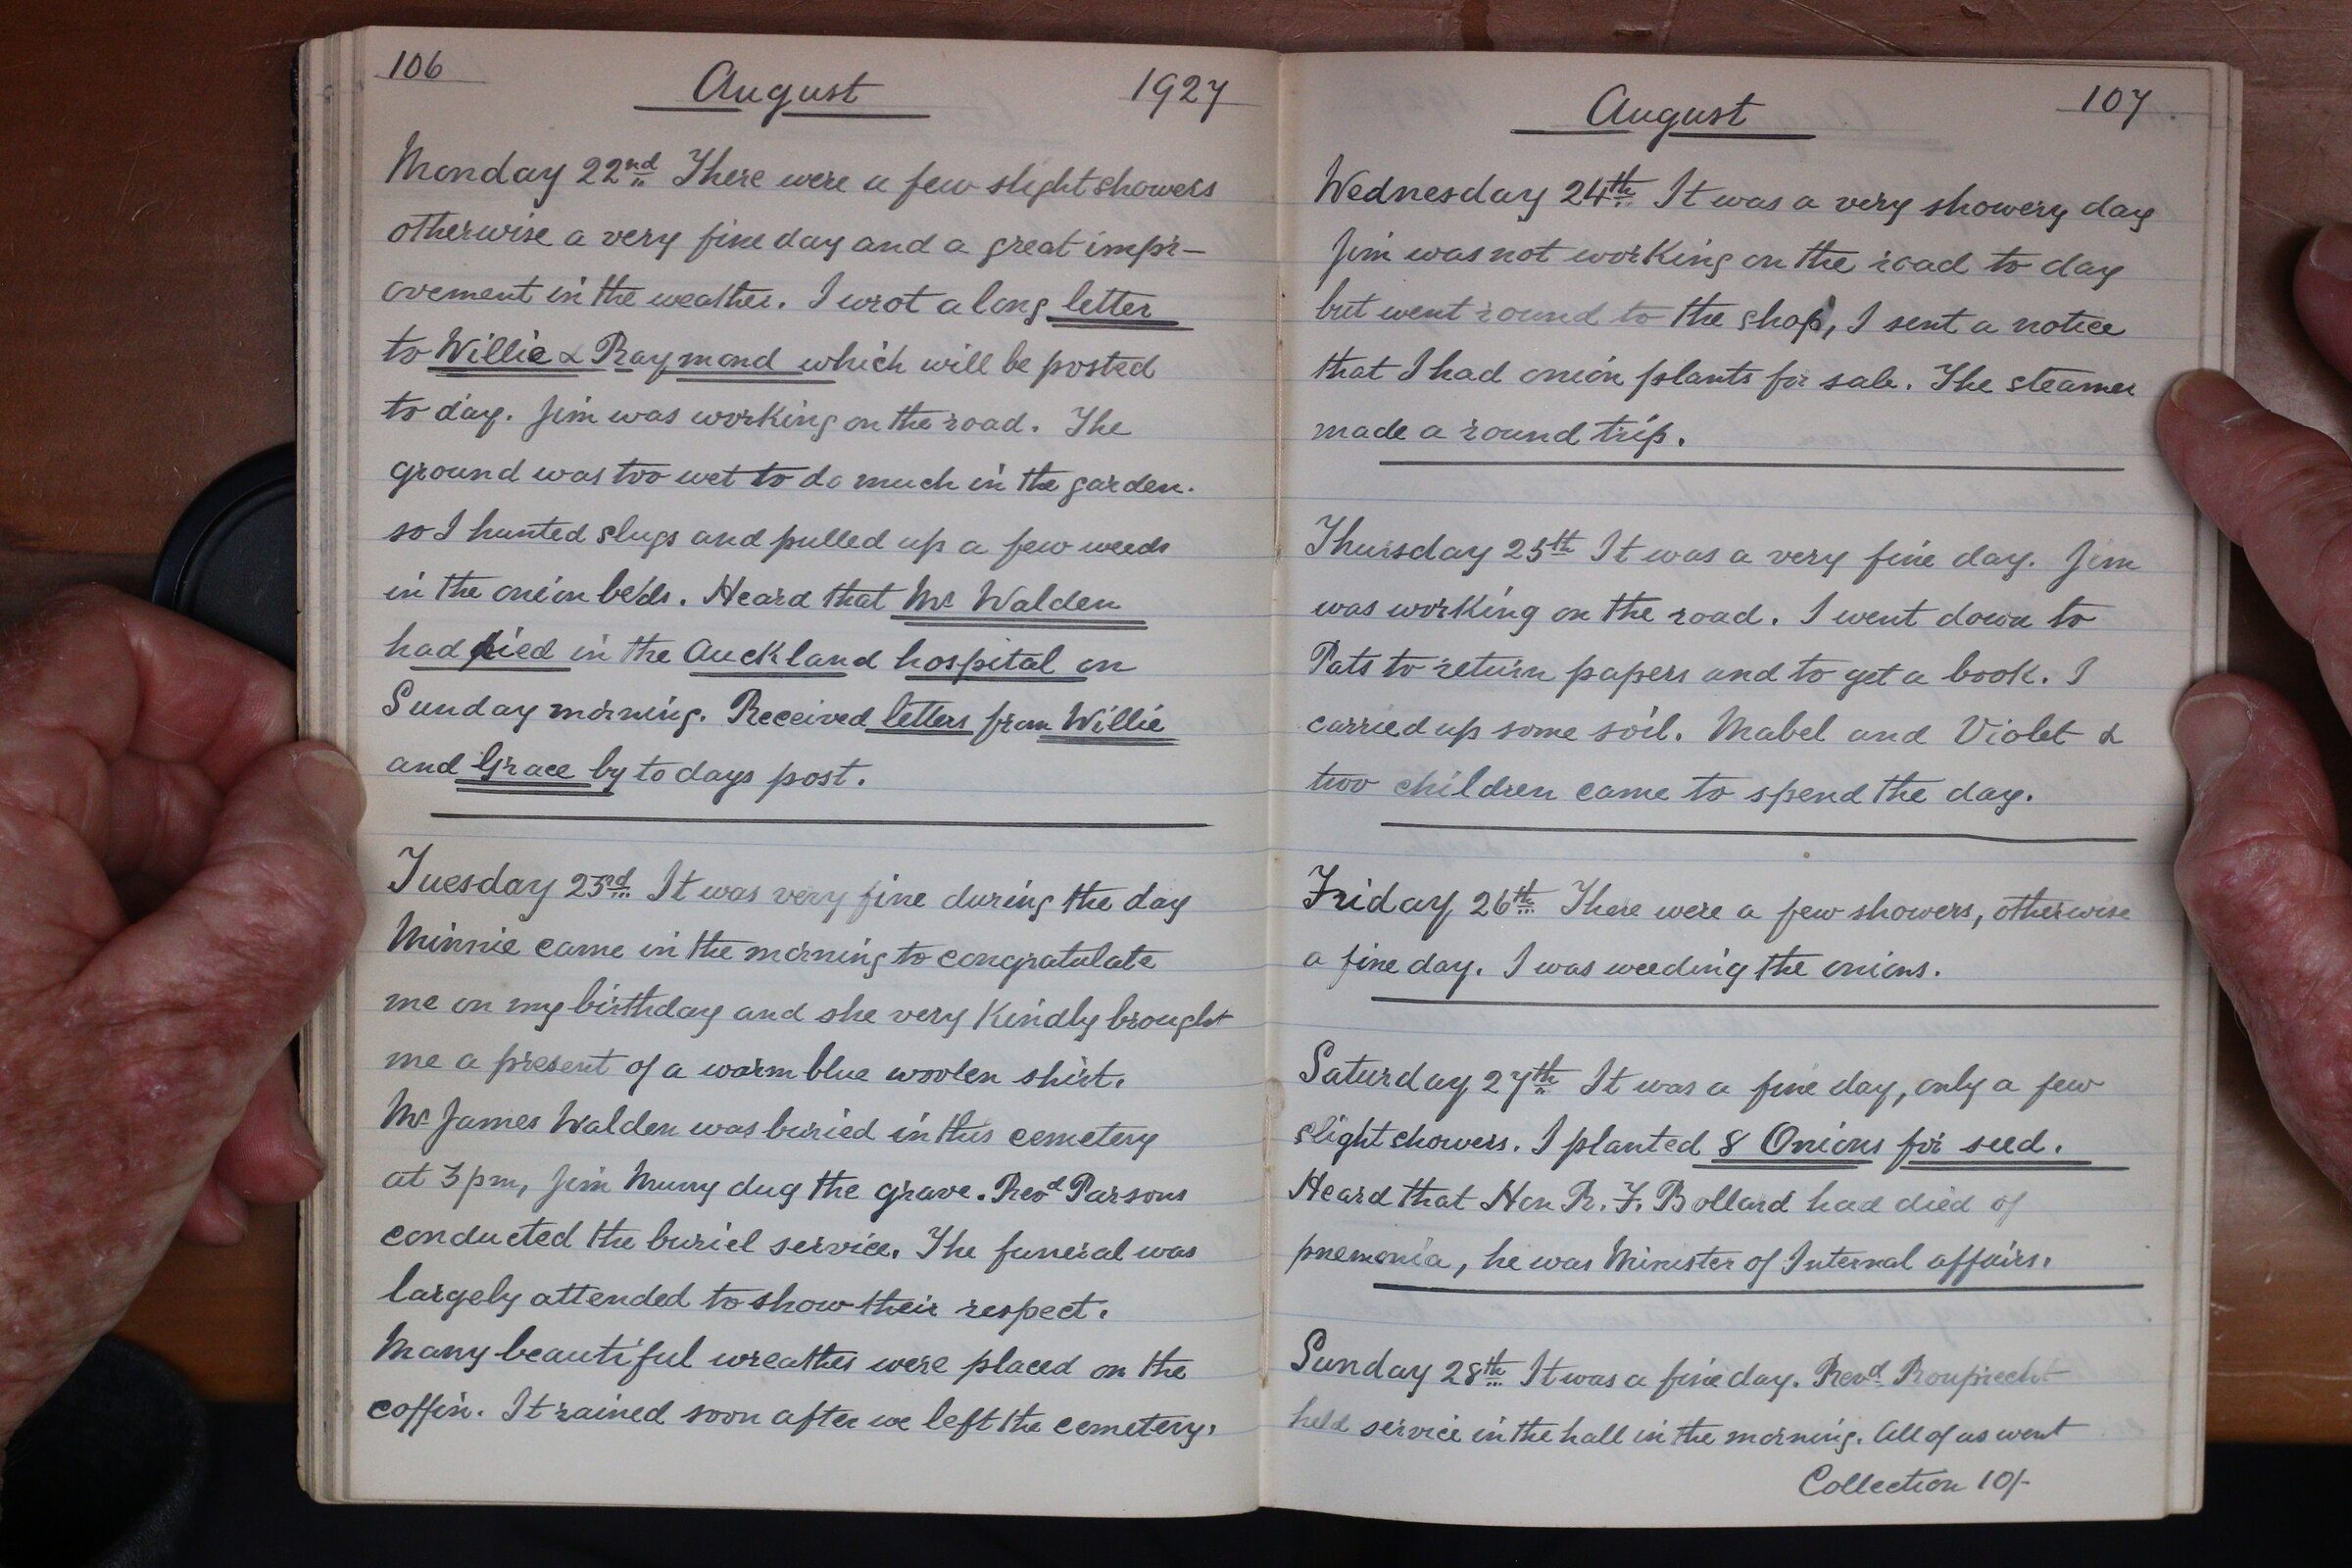 106
August 1927
Monday 22nd There were a few slight showers
otherwise a very fine day and a great impr-
ovement in the weather. I wrot a long letter
to Willie & Raymond which will be posted
to day. Jim was working on the road. The
ground was too wet to do much in the garden.
so I hunted slugs and pulled up a few weeds
in the onion beds. Heard that Mr Walden
had died in the Auckland hospital on
Sunday morning. Received letters from Willie
and Grace by to days post.
Tuesday 23rd It was very fine during the day
Minnie came in the morning to congratulate
me on my birthday and she very Kindly brought
me a present of a warm blue woolen shirt.
Mr James Walden was buried in this cemetery
at 3 pm, Jim Murry dug the grave. Revd Parsons
conducted the buriel service. The funeral was
largely attended to show their respect.
Many beautiful wreathes were placed on the
coffin. It rained soon after we left the cemetery.
August 107
Wednesday 24th It was a very showery day
Jim was not working on the road to day
but went round to the shop, I sent a notice
that I had onion plants for sale. The steamer
made a round trip.
Thursday 25th It was a very fine day. Jim
was working on the road. I went down to
Pats to return papers and to get a book. I
carried up some soil. Mabel and Violet &
two children came to spend the day.
Friday 26th There were a few showers, otherwise
a fine day. I was weeding the onions.
Saturday 27th It was a fine day, only a few
slight showers. I planted 8 Onions for seed.
Heard that Hon R. F. Bollard had died of
pnemonia, he was Minister of Internal affairs.
Sunday 28th It was a fine day. Revd Rouprecht
held service in the hall in the morning. All of us went
Collection 10/-